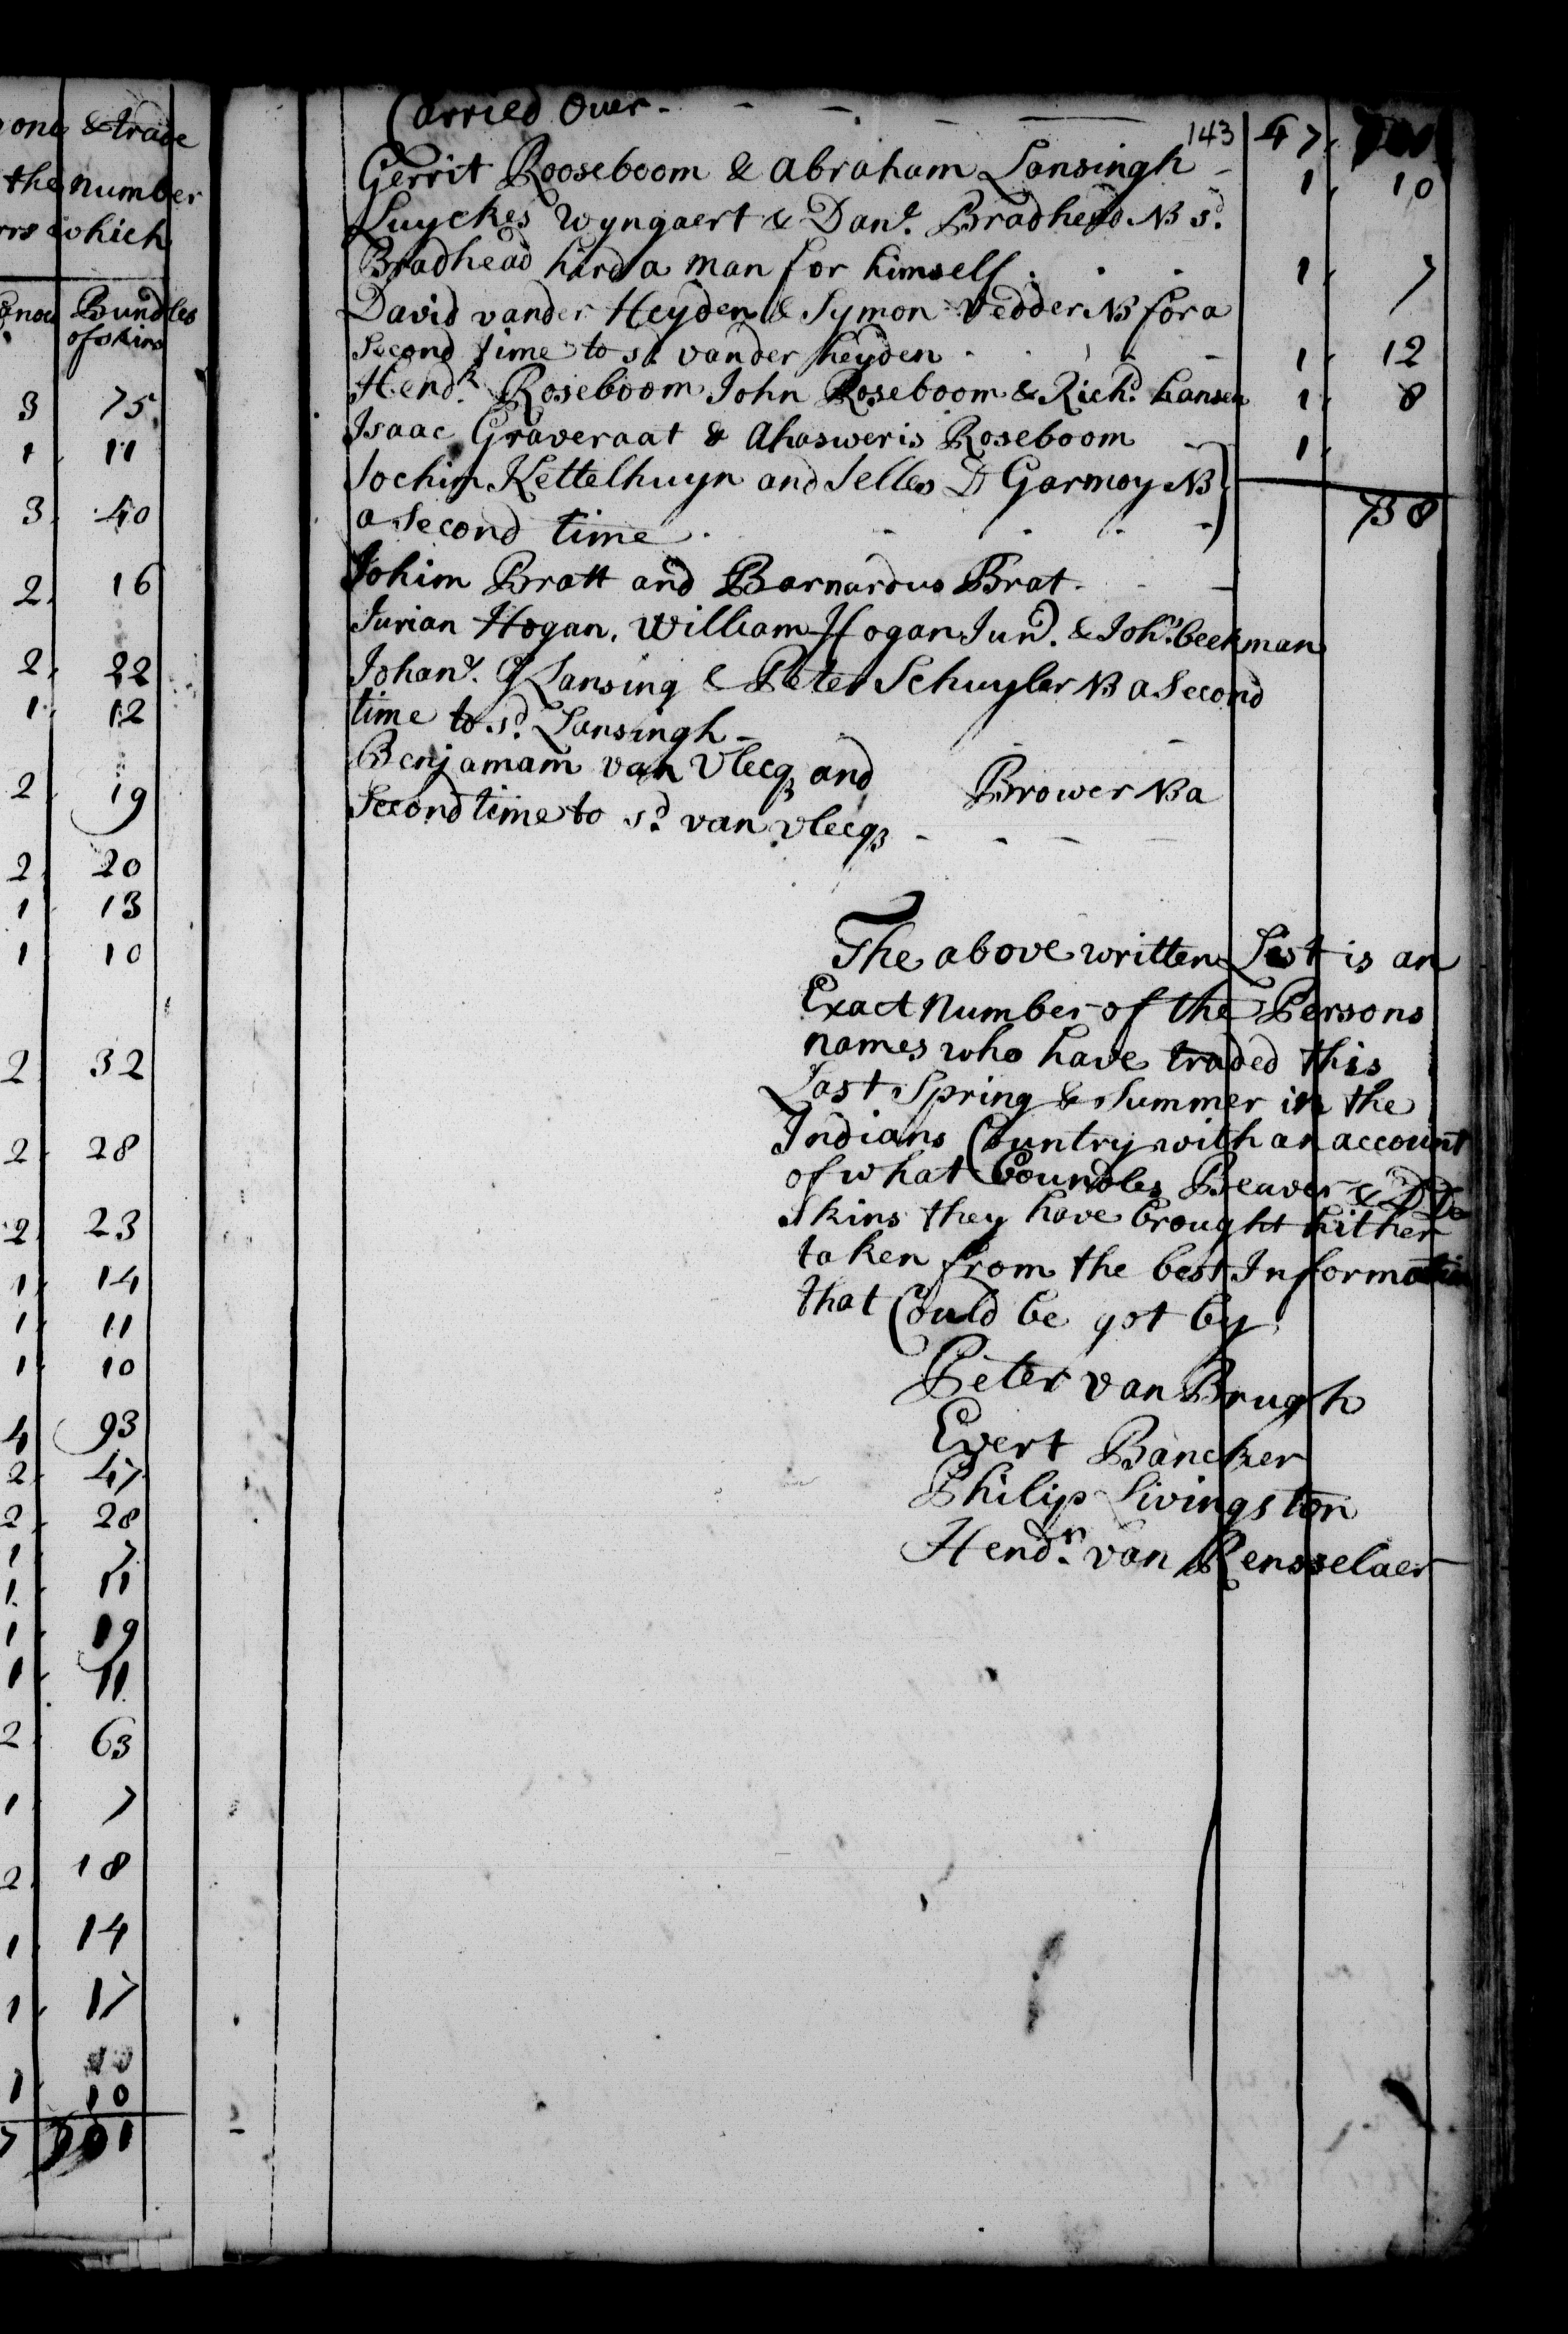 one & trade
the number
rs which
Bundles
of skins
3 75
1 11
3 40
2 16
2 22
1 12
2 19
2 20
1 13
1 10
2 32
2 28
2 23
1 14
1 11
1 10
4 93
2 47
2 28
1 7
1 11
1 19
1 11
2 63
1 7
2 18
1 14
1 17
1 10
7 701
Carried Over -
143 47
Gerrit Rooseboom & Abraham Lansingh - 1 10
Luyckes Wyngaert & Danl. Bradhead NB sd.
Bradhead hird a man for himself 1 7
David vander Heyden & Symon Vedder NB for a
Second time to sd. vander heyden 1 12
Hendk. Roseboom John Roseboom & Richd. hansen 1 8
Isaac Graveraat & Ahasweris Roseboom 1
Jochim Kettelhuyn and Selles D Garmoy NB
a Second time 738
Johim Bratt and Barnardus Brat -
Jurian Hogan, William Hogan Junr. & Johs. beekman
Johans. G Lansing & Peter Schuyler NB a Second
time to sd. Lansingh -
Benjamam van Vlecq and Brower NB a
Second time to sd. van vlecq -
The above written List is an
Exact Number of the Persons
names who have traded this
Last Spring & Summer in the
Indians Country with an account
of what Boundles Beaver &
Skins they have brought hither
taken from the best Information
that Could be got by
Peter van Brugh
Evert Bancker
Philip Livingston
Hendk. van Rensselaer